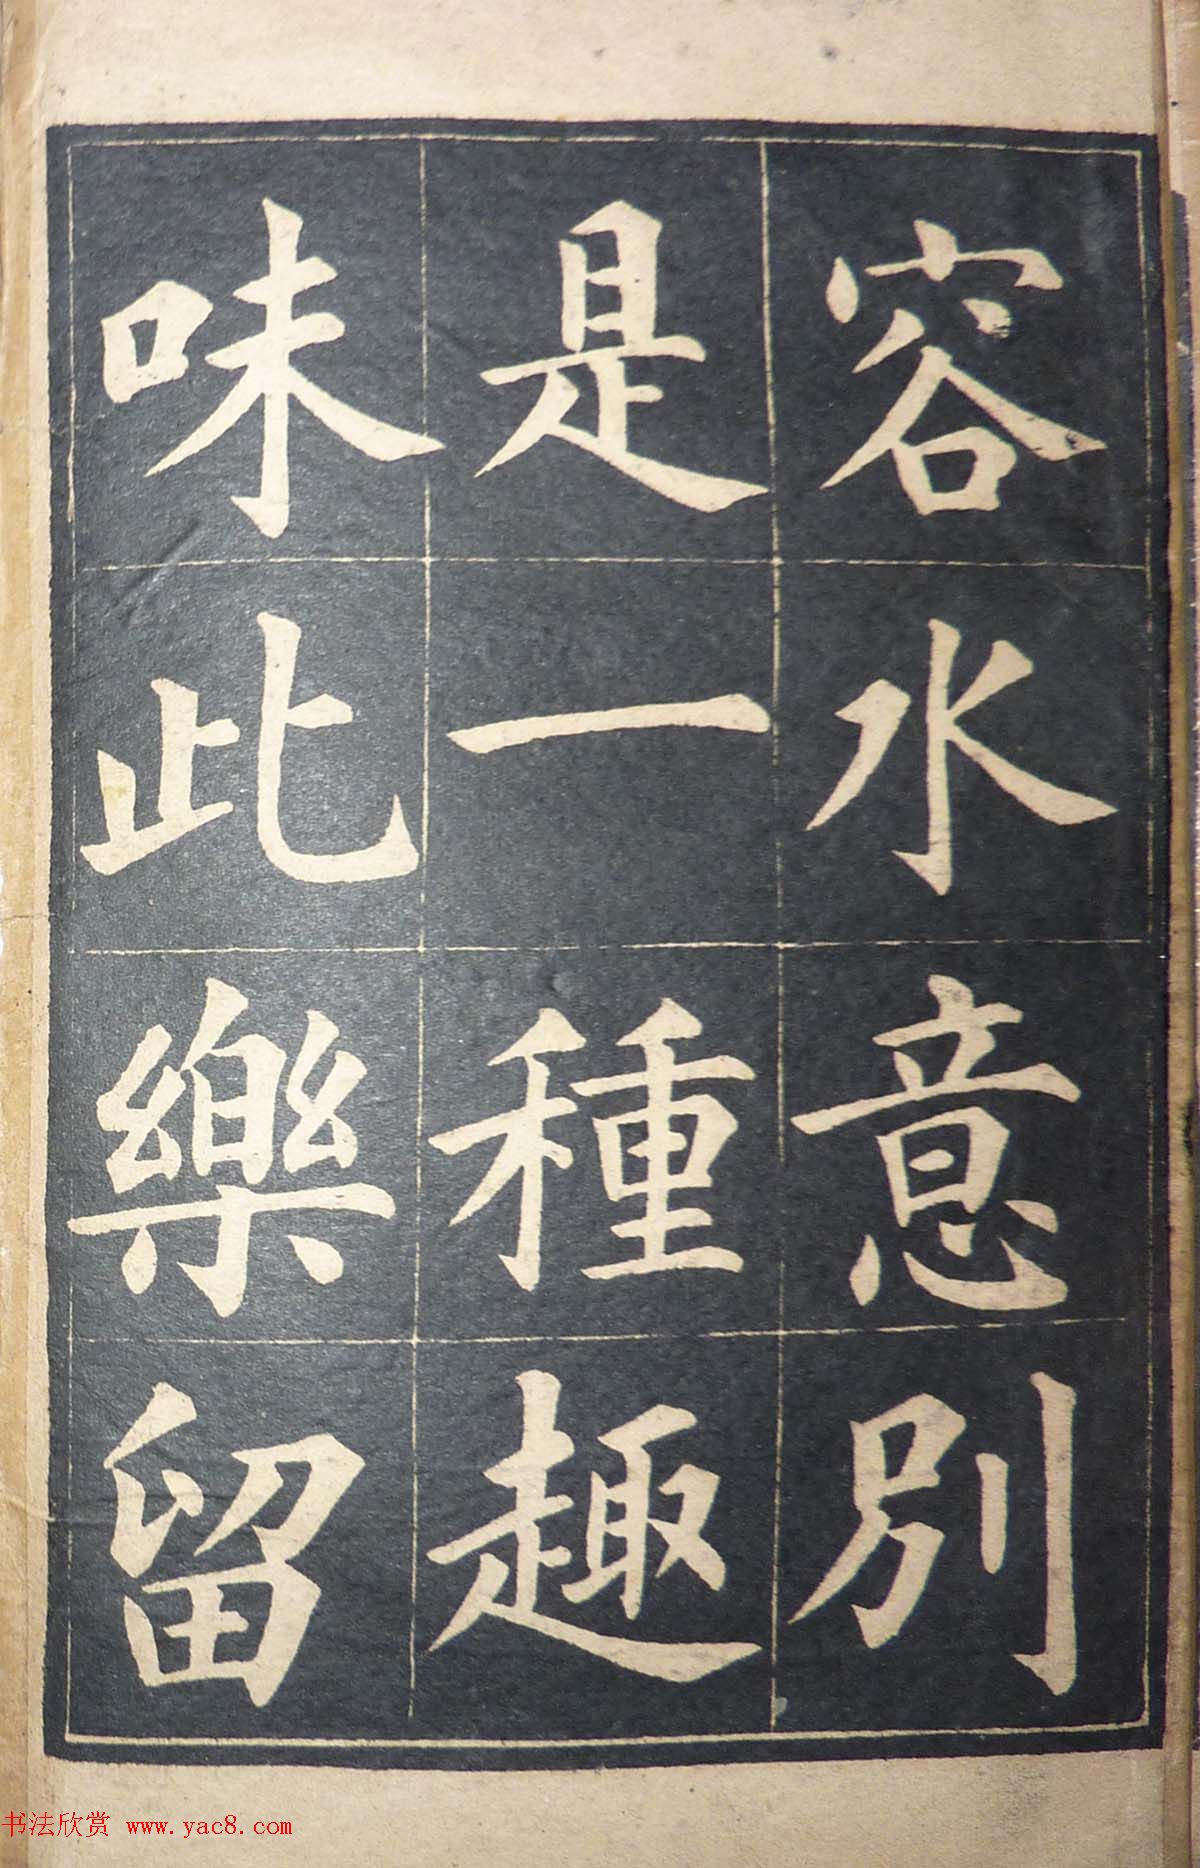 容水意別
是一種趣
味此樂留
书法欣赏 www.yac8.com